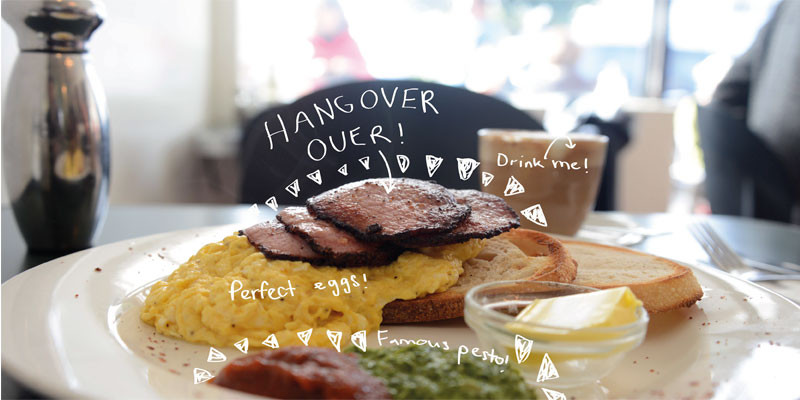 HANGOVER
OVER!
Drink me!
Perfect eggs!
Famous pesto!